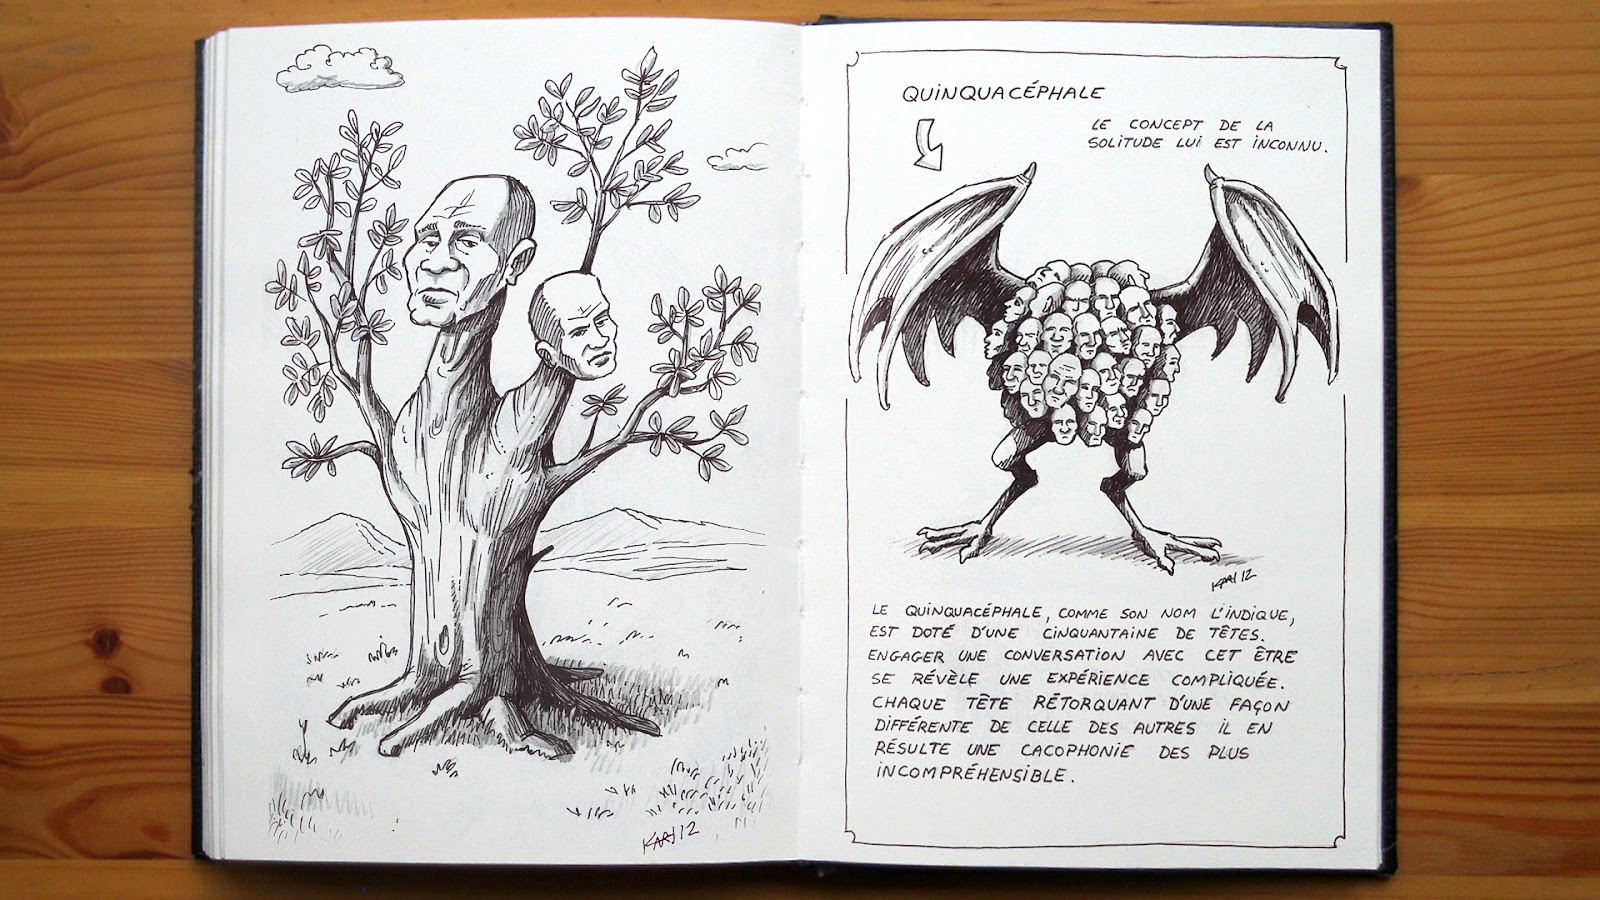 QUINQUACÉPHALE
LE CONCEPT DE LA
SOLITUDE LUI EST INCONNU.
KARI 12
LE QUINQUACÉPHALE, COMME SON NOM L'INDIQUE,
EST DOTÉ D'UNE CINQUANTAINE DE TÊTES.
ENGAGER UNE CONVERSATION AVEC CET ÊTRE
SE RÉVÈLE UNE EXPÉRIENCE COMPLIQUÉE.
CHAQUE TÊTE RÉTORQUANT D'UNE FAÇON
DIFFÉRENTE DE CELLE DES AUTRES IL EN
RÉSULTE UNE CACOPHONIE DES PLUS
INCOMPRÉHENSIBLE.
KARI 12